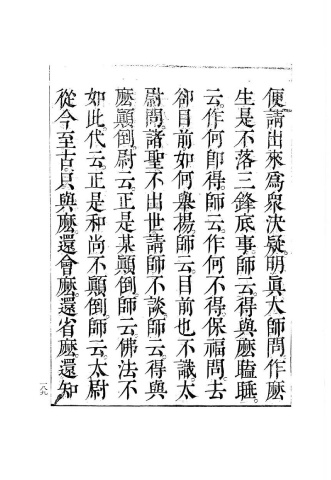 便請出來爲衆決疑。明眞大師問作麽
生是不落三鋒底事。師云。得與麽瞌睡。
云。作何卽得。師云。作何不得。保福問。去
卻目前如何舉揚。師云。目前也不識。太
尉問。諸聖不出世請師不談。師云。得與
麽顚倒。尉云。正是某顚倒。師云。佛法不
如此。代云。正是和尚不顚倒。師云。太尉
從今至古。只與麽。還會麽。還省麽。還知
一八九